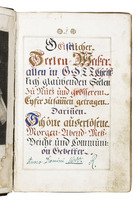 Geistlicher
Seelen-Wecker
allen in GOTT Christ-
lich glaubenden Seelen
Zu Nutz und grösserem
Eyfer zusamen getragen.
Darinnen
Schöne auserlesene
Morgen- Abend- Meß-
Beicht und Commun-
ion Gebetter.
Anno Domini